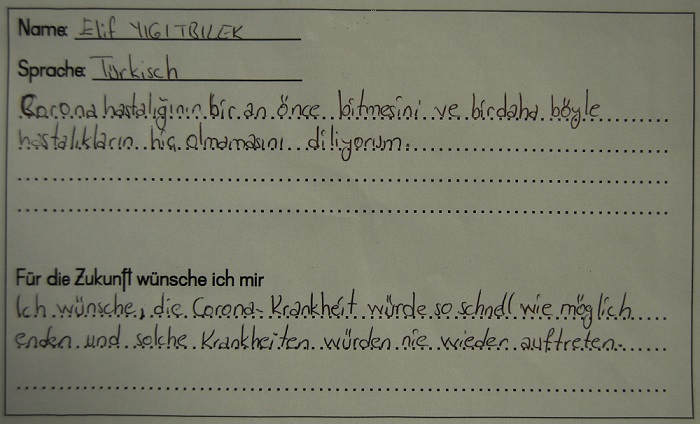 Name: Elif YIGITBILEK
Sprache: Türkisch
Corona hastalığının bir an önce bitmesini ve birdaha böyle
hastalıkların hiç olmamasını diliyorum.
Für die Zukunft wünsche ich mir
Ich wünsche, die Corona-Krankheit würde so schnell wie möglich
enden und solche Krankheiten würden nie wieder auftreten.